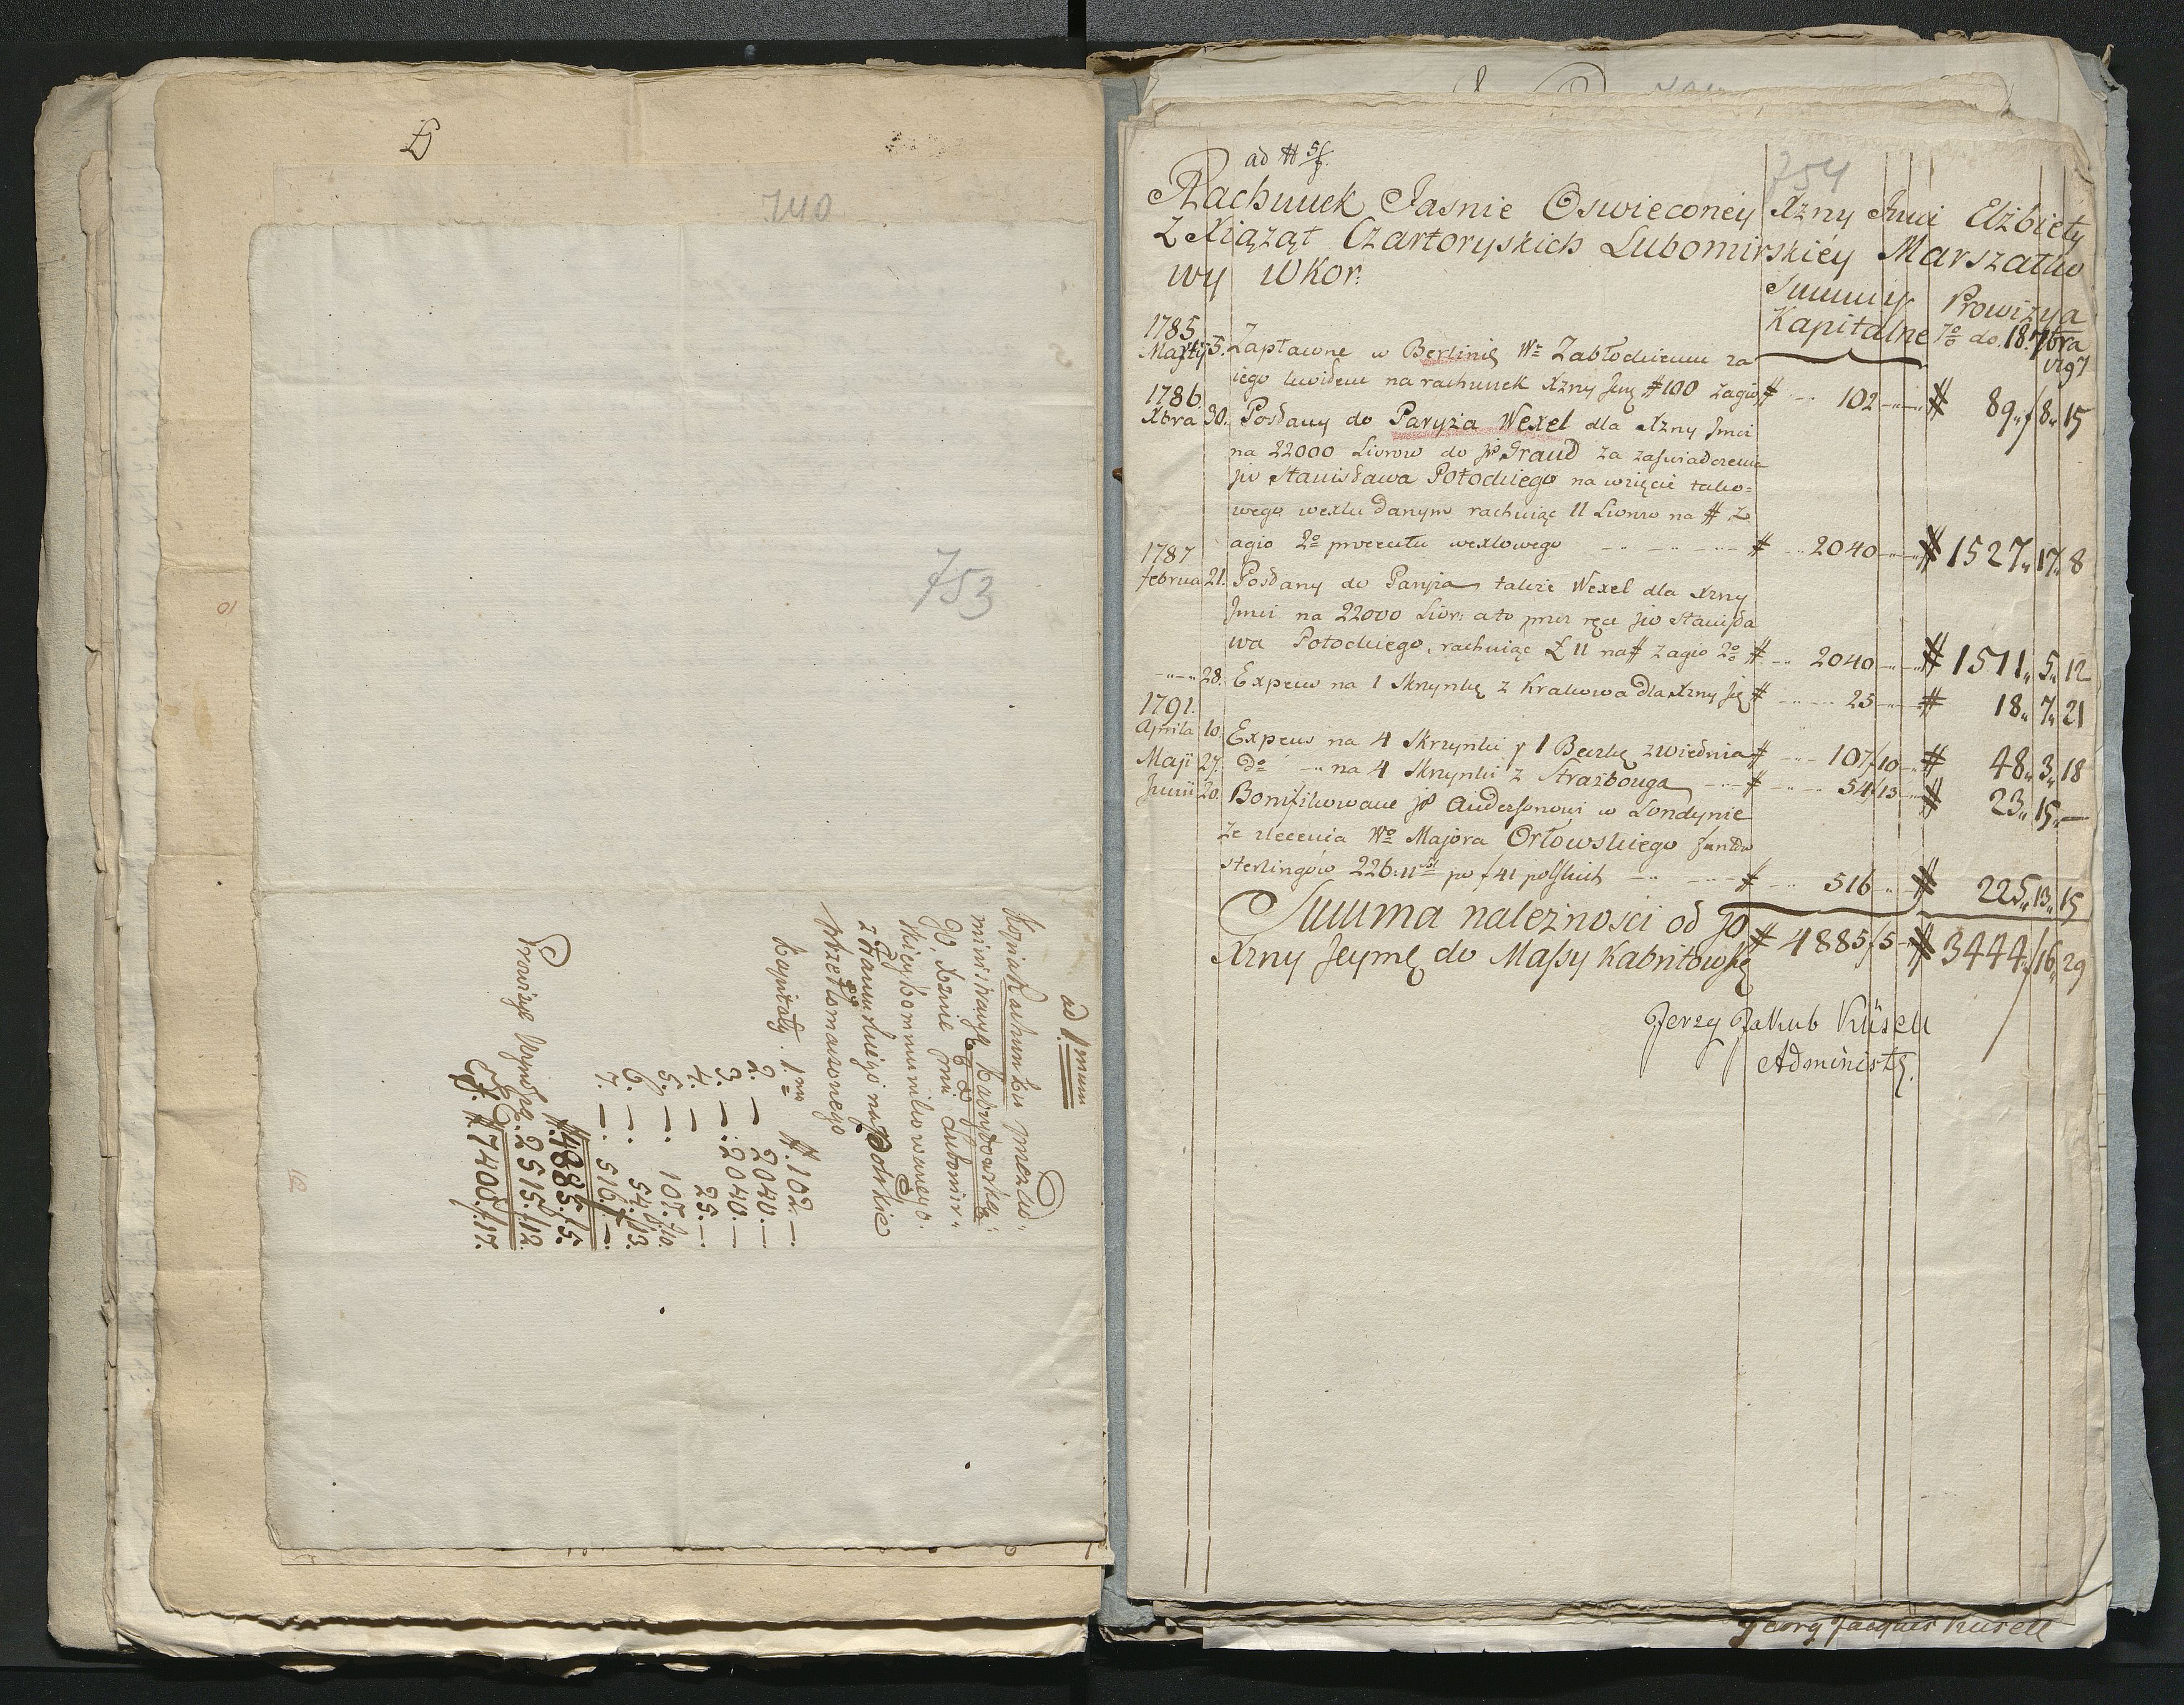 740
753
ad 1mum
Kopia Rachunku między
Massą Kabrytowską
JO. Xżnie Jmci Lubomir-
skiey kommunikowanego
z Francuskiego na Polskie
przetłomaczonego
Kapitały. 1mo #. 102.—
2. — 2040.—
3. — 2040.—
4. — 25.—
5. — 107.f10.
6. — 54.f13.
7. — 516.f—.
#. 4885.f5.
Prowizye wynoszą 2515.f12.
#. 7400.f17.
ad # 5/f.
754
Rachunek Jasnie Oswieconey Xżny Jmci Elżbiety
z Xiążąt Czartoryskich Lubomirskiéy Marszałko
wy WKor:
Summy Prowizya
Kapitalne 7% do 18. 7bra
1797
1785
Martij 5. Zapłacone w Berlinie Wu Zabłockiemu za
iego kwitem na rachunek Xżny Jmci # 100 z agio # 102 # 89.f8.15
1786
Xbra 30. Posłany do Paryża Wexel dla Xżny Jmci
na 22000 Liwrow do jP Grand za zaswiadczeniem
jW Stanisława Potockiego na wzięcie tako-
wego wexlu danym rachuiąc 11 Liwrow na # z
agio 2% procentu wexlowego # 2040 # 1527.17.8
1787
februa 21. Posłany do Paryża także Wexel dla Xżny
Jmci na 22000 Liwr: a to przez ręce jW Stanisła
wa Potockiego, rachuiąc £ 11 na # z agio 2% # 2040 # 1511.5.12
28. Expens na 1 Skrzynkę z Krakowa dla Xżny Je # 25 # 18.7.21
1791.
Aprila 10. Expens na 4 Skrzynki y 1 Beczkę z Wiednia # 107/10 # 48.3.18
Maji 27. do na 4 Skrzynki z Strazbourga # 54/13 # 23.15.—
Junii 20. Bonifikowane jP Andersonowi w Londynie
ze zlecenia Wo Majora Orłowskiego funtów
sterlingów 226:11 po f 41 polskich # 516 # 225.13.15
Summa należności od JO # 4885/5 # 3444/16.29
Xżny Jeymę do Massy Kabritowskię
Jerzy Jakub Küsell
Administr.
Georg Jacques Kusell